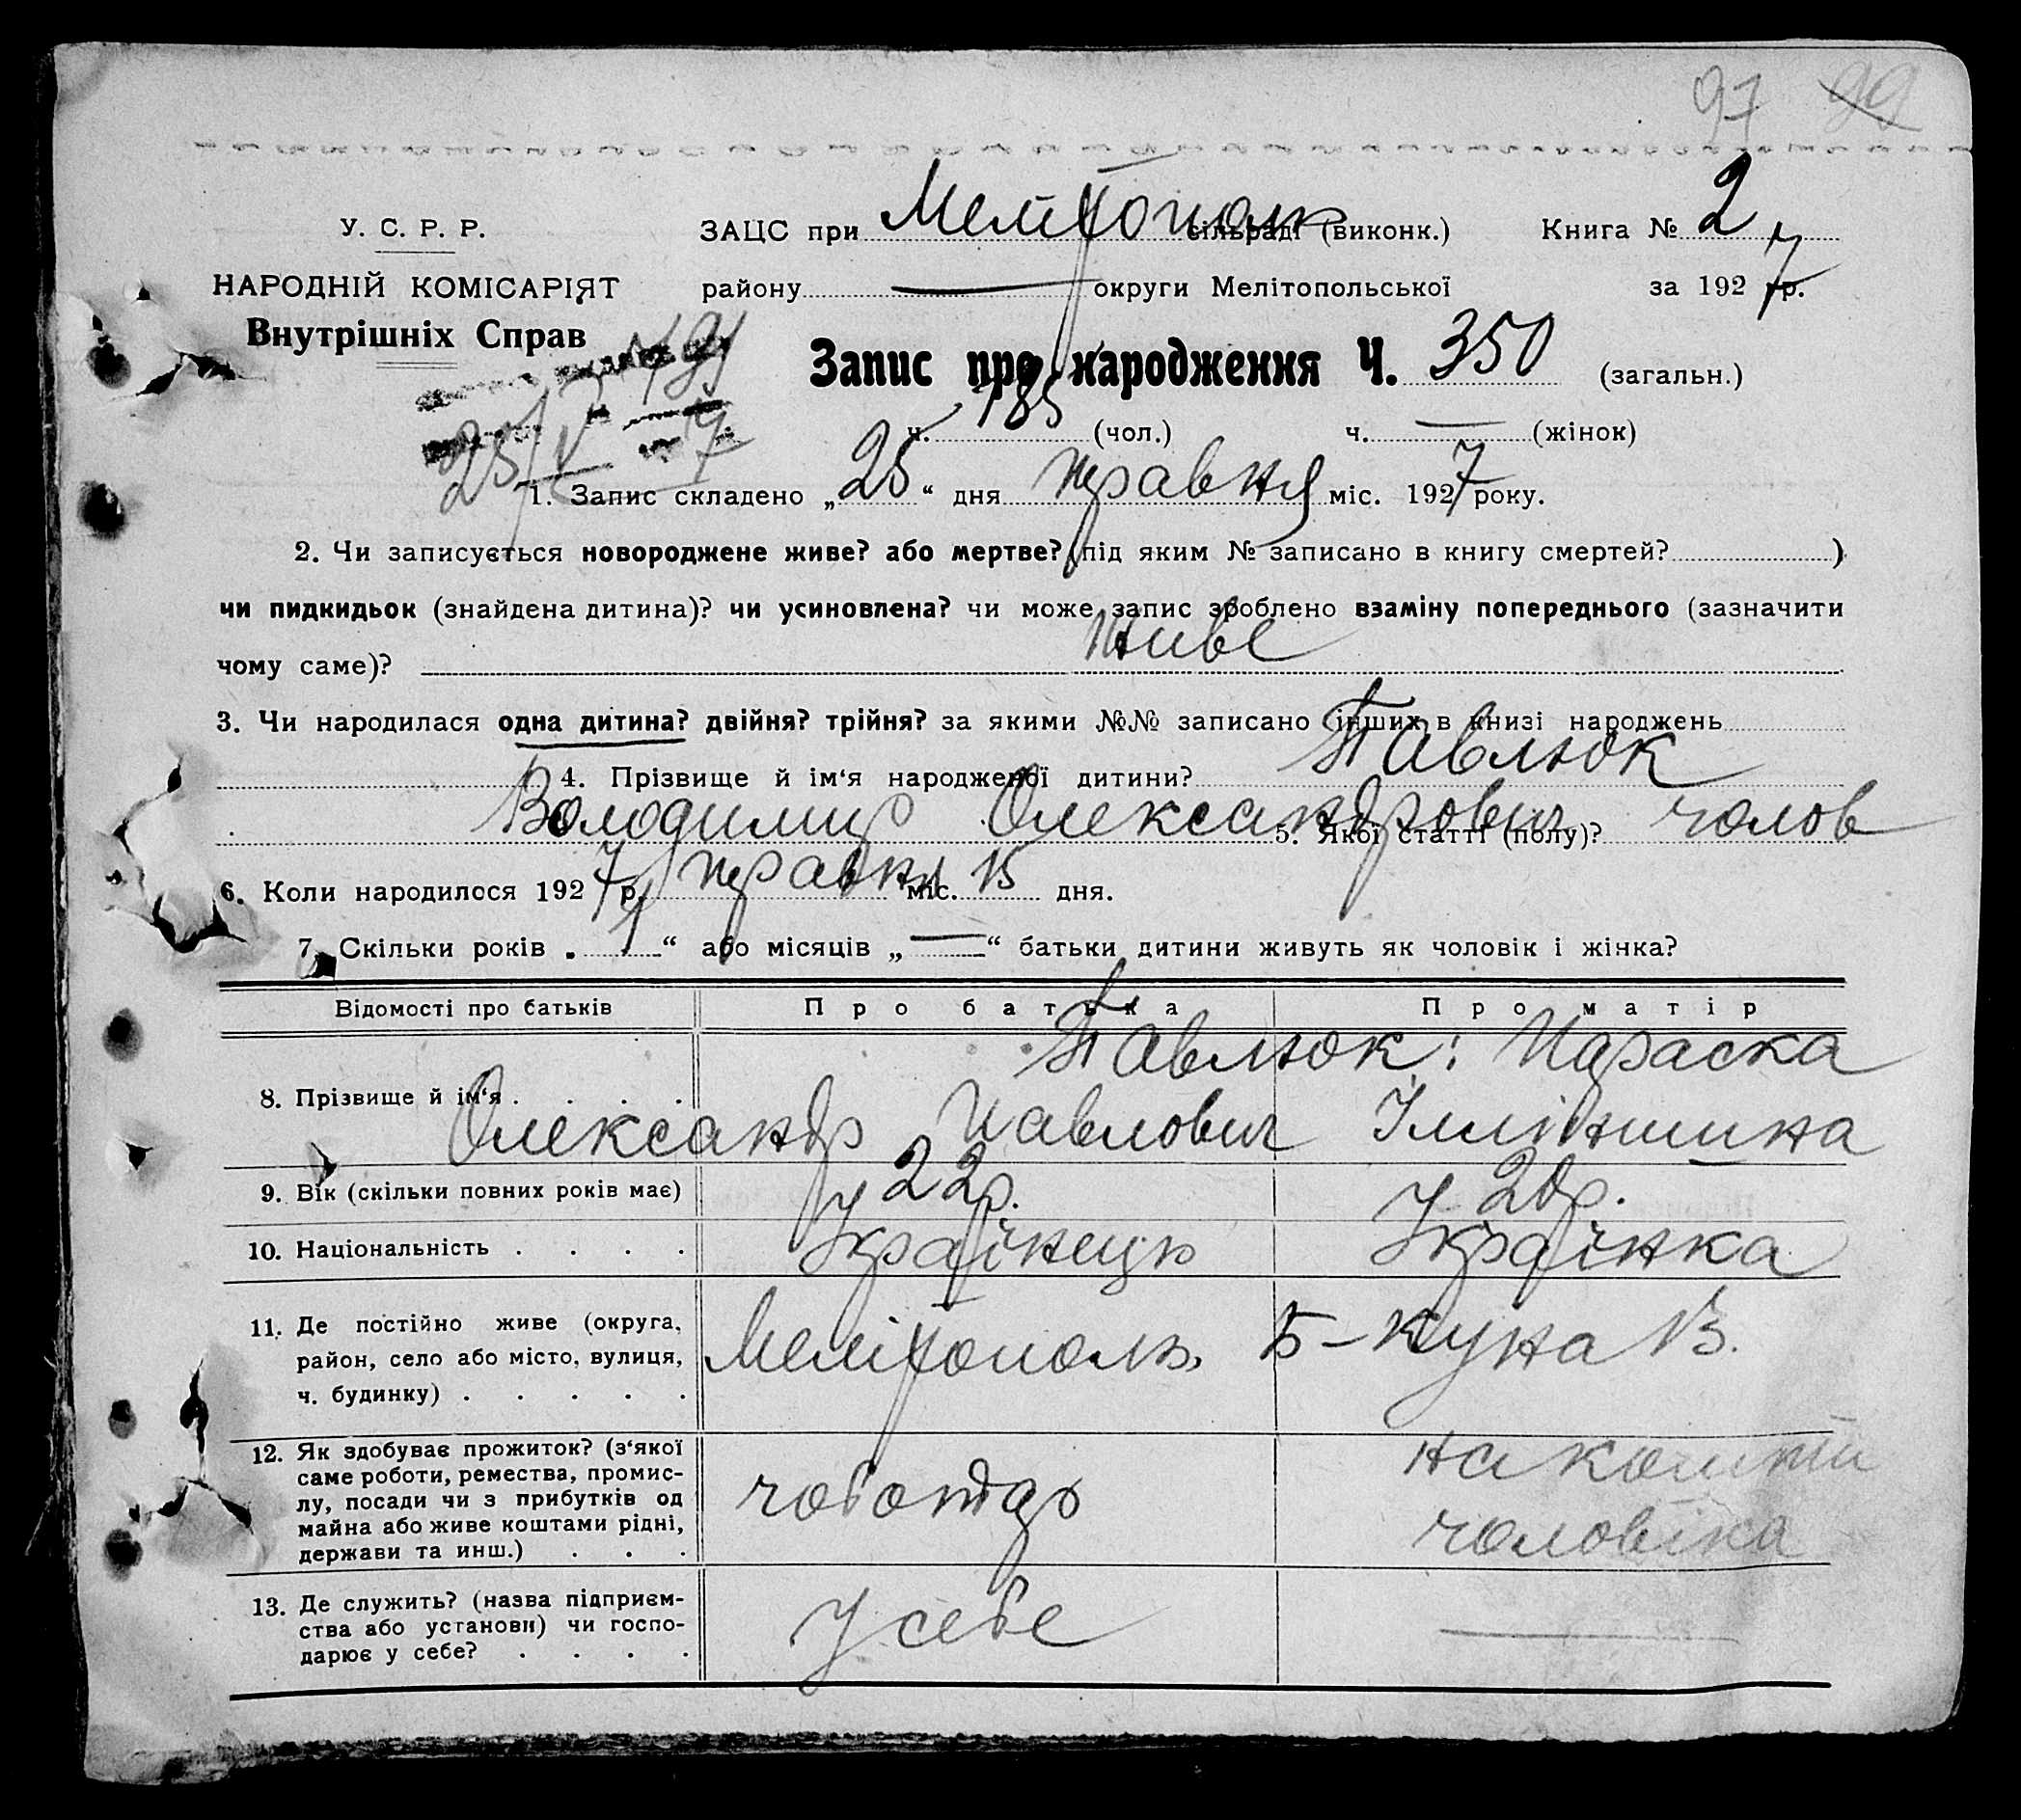 97 99
У. С. Р. Р.
ЗАЦС при Мелітополь сільраді (виконк.) Книга № 2
НАРОДНІЙ КОМІСАРІЯТ
району — округи Мелітопольської за 1927 р.
Внутрішніх Справ
Запис про народження Ч. 350 (загальн.)
ч. 185 (чол.) ч. — (жінок)
25/V 7
1. Запис складено „25“ дня травня міс. 1927 року.
2. Чи записується новороджене живе? або мертве? (під яким № записано в книгу смертей? )
чи пидкидьок (знайдена дитина)? чи усиновлена? чи може запис зроблено взаміну попереднього (зазначити
чому саме)? живе
3. Чи народилася одна дитина? двійня? трійня? за якими №№ записано інших в книзі народжень
4. Прізвище й ім‘я народженої дитини? Павлюк
Володимир Олександрович 5. Якої статті (полу)? чолов
6. Коли народилося 1927 р. травня міс. 15 дня.
7. Скільки років „1“ або місяців „—“ батьки дитини живуть як чоловік і жінка?
Відомості про батьків Про батька Про матір
Павлюк: Параска
8. Прізвище й ім‘я . . . . Олександр Павлович Іллівнишна
9. Вік (скільки повних років має) 22 р. 20 р.
10. Національність . . . . Українець Українка
11. Де постійно живе (округа,
район, село або місто, вулиця, Мелітополь, Б-Куна 13.
ч. будинку) . . . . .
12. Як здобуває прожиток? (з‘якої на кошти
саме роботи, ремества, промис-
лу, посади чи з прибутків од чоботарь
майна або живе коштами рідні, чоловіка
держави та инш.) . . .
13. Де служить? (назва підприєм-
ства або установи) чи госпо- У себе —
дарює у себе? . . . .